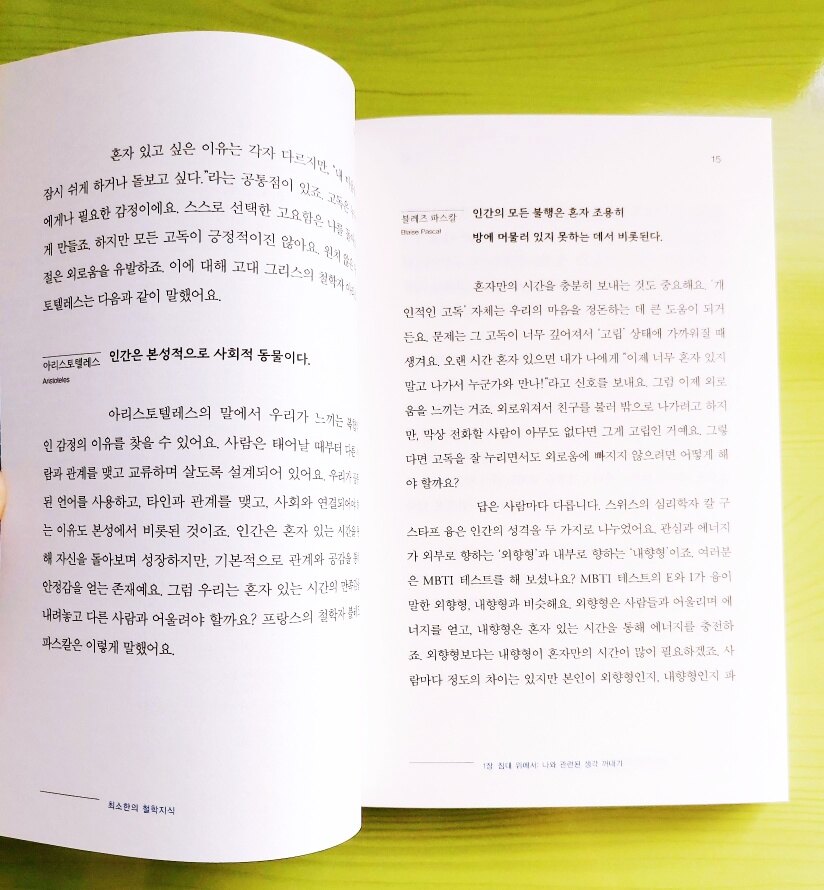 혼자 있고 싶은 이유는 각자 다르지만, "내
잠시 쉬게 하거나 돌보고 싶다."라는 공통점이 있죠. 고독은
에게나 필요한 감정이에요. 스스로 선택한 고요함은 나를
게 만들죠. 하지만 모든 고독이 긍정적이진 않아요. 원치 않은
절은 외로움을 유발하죠. 이에 대해 고대 그리스의 철학자
토텔레스는 다음과 같이 말했어요.
아리스토텔레스 인간은 본성적으로 사회적 동물이다.
Aristoteles
아리스토텔레스의 말에서 우리가 느끼는 복합
인 감정의 이유를 찾을 수 있어요. 사람은 태어날 때부터 다른
람과 관계를 맺고 교류하며 살도록 설계되어 있어요. 우리가
된 언어를 사용하고, 타인과 관계를 맺고, 사회와 연결되어야 하
는 이유도 본성에서 비롯된 것이죠. 인간은 혼자 있는 시간을
해 자신을 돌아보며 성장하지만, 기본적으로 관계와 공감을
안정감을 얻는 존재예요. 그럼 우리는 혼자 있는 시간의
내려놓고 다른 사람과 어울려야 할까요? 프랑스의 철학자
파스칼은 이렇게 말했어요.
최소한의 철학지식
15
블레즈 파스칼 인간의 모든 불행은 혼자 조용히
Blaise Pascal 방에 머물러 있지 못하는 데서 비롯된다.
혼자만의 시간을 충분히 보내는 것도 중요해요. '개
인적인 고독' 자체는 우리의 마음을 정돈하는 데 큰 도움이 되거
든요. 문제는 그 고독이 너무 깊어져서 '고립' 상태에 가까워질 때
생겨요. 오랜 시간 혼자 있으면 내가 나에게 "이제 너무 혼자 있지
말고 나가서 누군가와 만나!"라고 신호를 보내요. 그럼 이제 외로
움을 느끼는 거죠. 외로워져서 친구를 불러 밖으로 나가려고 하지
만, 막상 전화할 사람이 아무도 없다면 그게 고립인 거예요. 그렇
다면 고독을 잘 누리면서도 외로움에 빠지지 않으려면 어떻게 해
야 할까요?
답은 사람마다 다릅니다. 스위스의 심리학자 칼 구
스타프 융은 인간의 성격을 두 가지로 나누었어요. 관심과 에너지
가 외부로 향하는 '외향형'과 내부로 향하는 '내향형'이죠. 여러분
은 MBTI 테스트를 해 보셨나요? MBTI 테스트의 E와 I가 융이
말한 외향형, 내향형과 비슷해요. 외향형은 사람들과 어울리며 에
너지를 얻고, 내향형은 혼자 있는 시간을 통해 에너지를 충전하
죠. 외향형보다는 내향형이 혼자만의 시간이 많이 필요하겠죠. 사
람마다 정도의 차이는 있지만 본인이 외향형인지, 내향형인지 파
1장 침대 위에서: 나와 관련된 생각 꺼내기